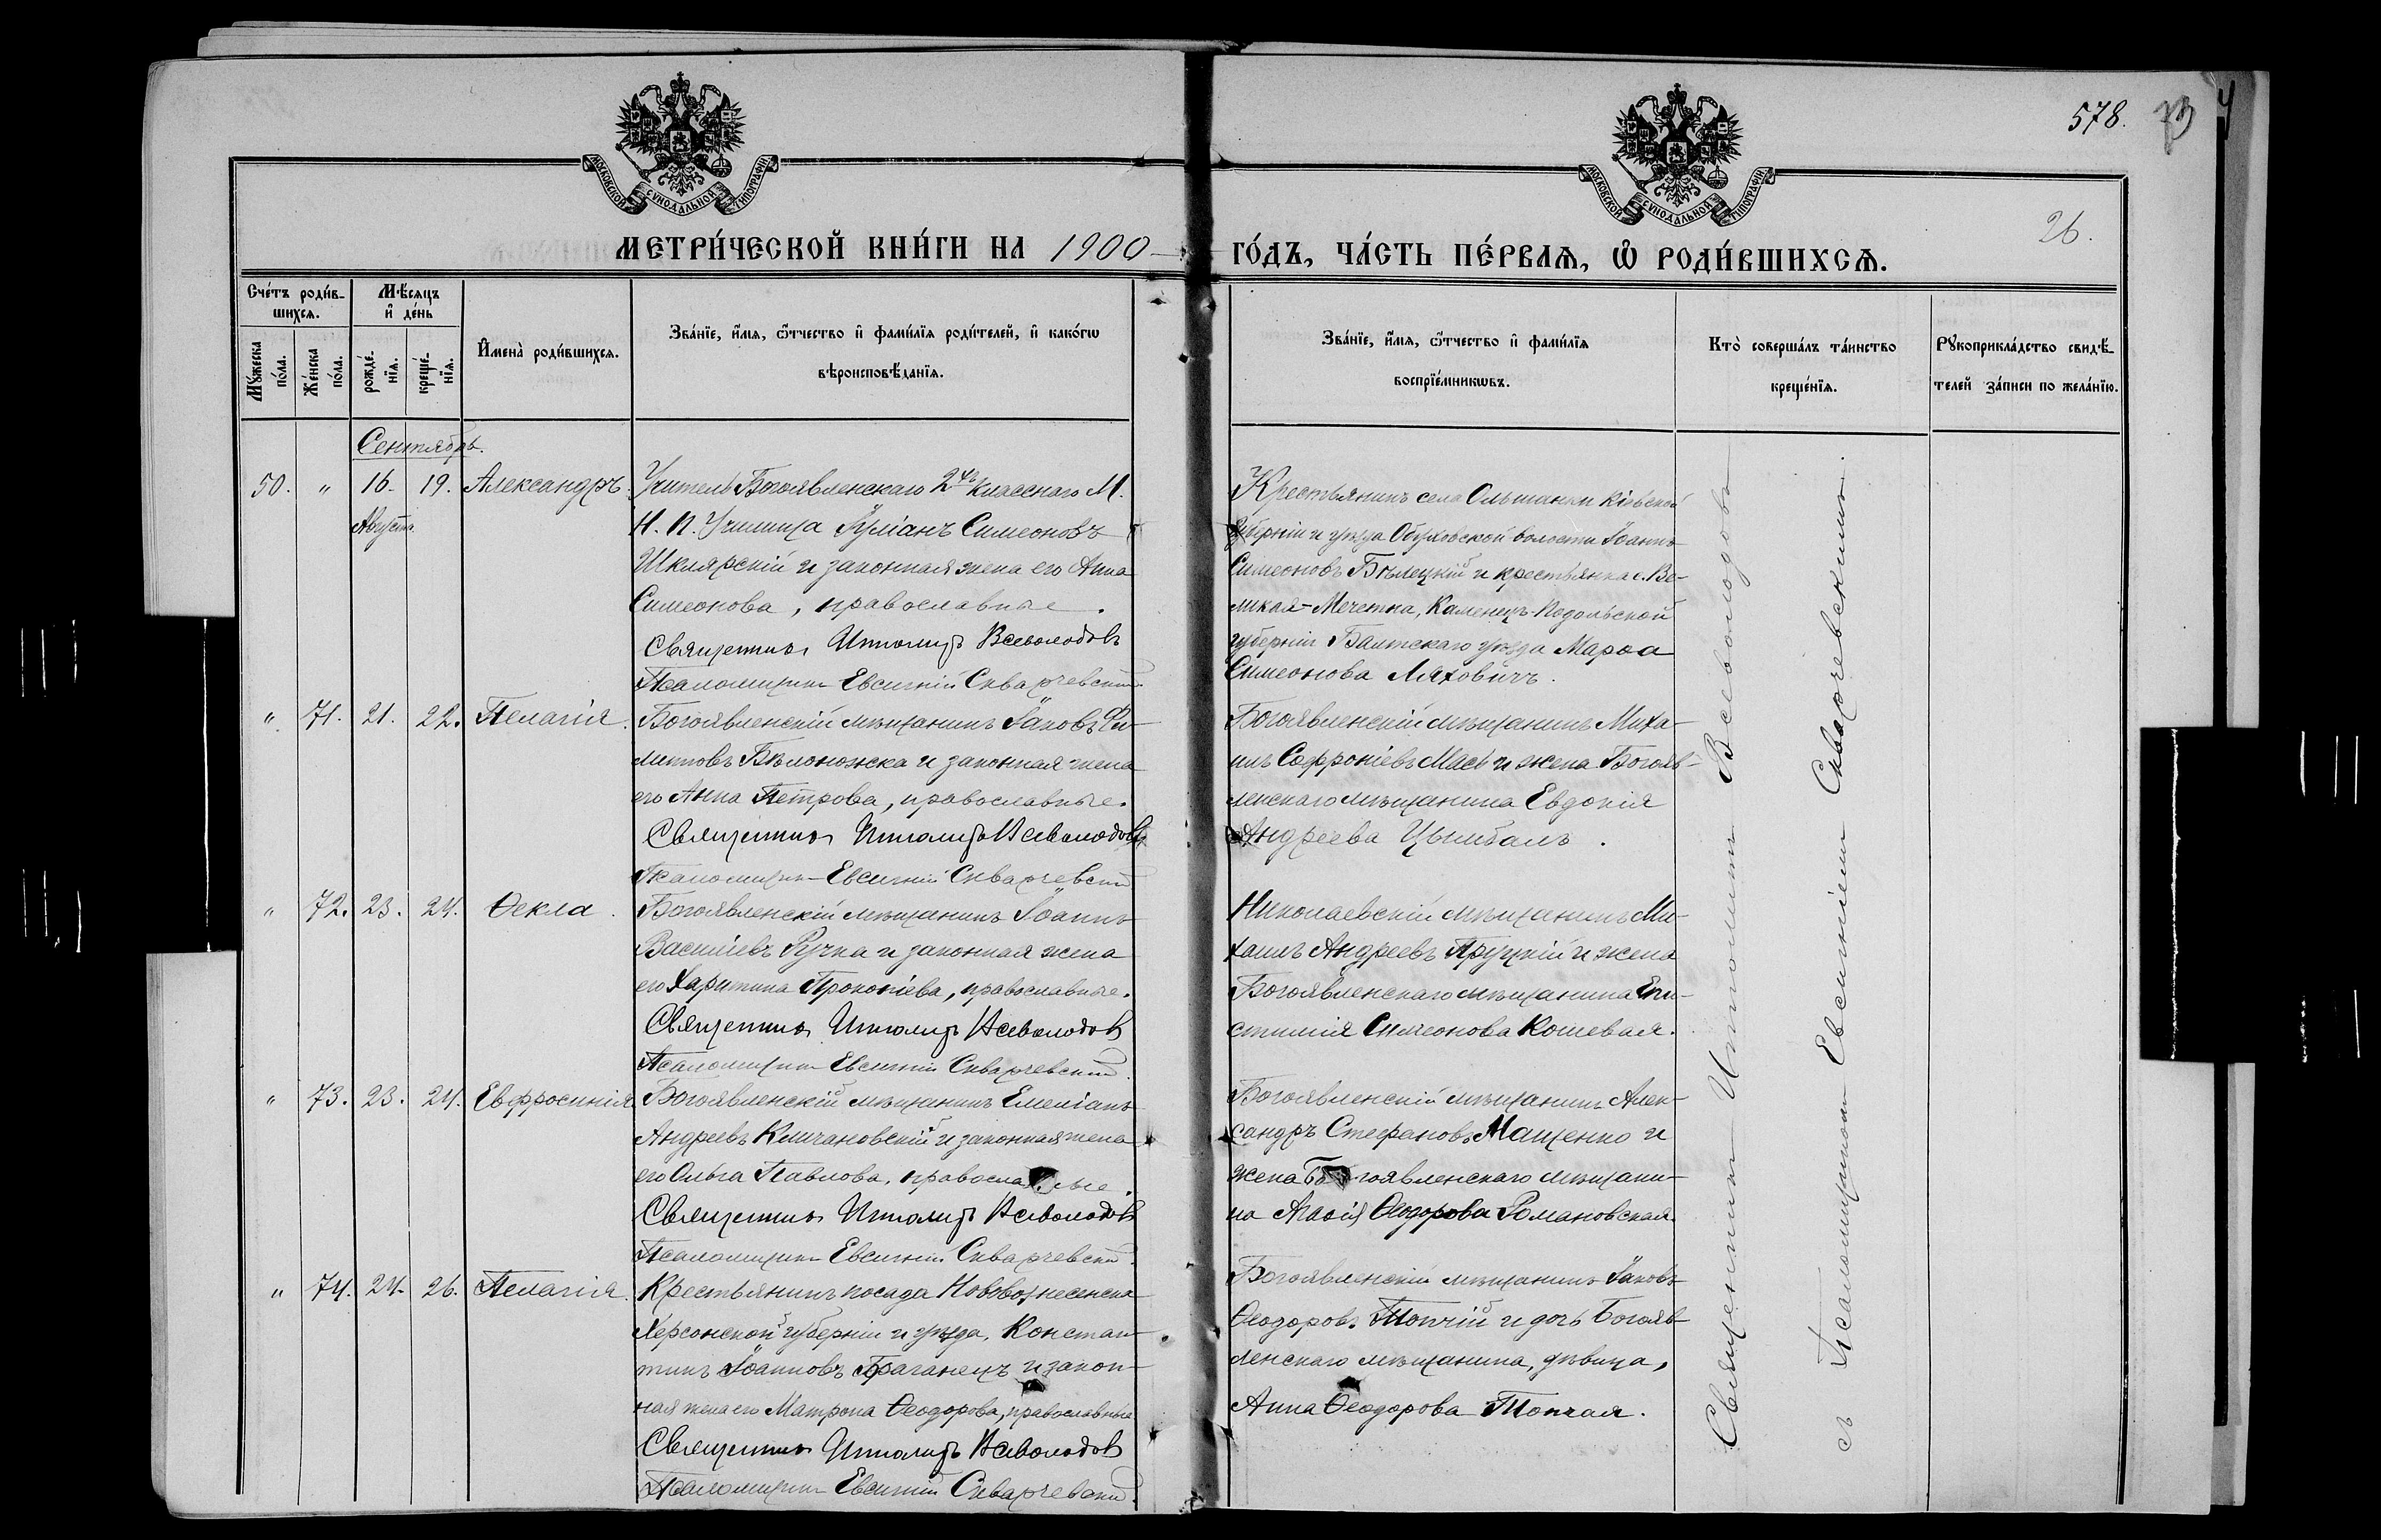 578.
26.
МОСКОВСКОЙ СУНОДАЛЬНОЙ ТИПОГРАФІИ
МОСКОВСКОЙ СУНОДАЛЬНОЙ ТИПОГРАФІИ
МЕТРИ́ЧЕСКОЙ КНИ́ГИ НА 1900
ГО́ДЪ, ЧА́СТЬ ПЕ́РВАѦ, Ѽ РОДИ́ВШИХСѦ.
Сче́тъ роди́в-
шихсѧ.
Мꙋ́жеска по́ла.
Же́нска по́ла.
Мѣ́сѧцъ
и҆ де́нь
рожде́нїѧ.
креще́нїѧ.
И҆мена̀ роди́вшихсѧ.
Зва́нїе, и҆́мѧ, ѻ҆́тчество и҆ фами́лїѧ роди́телей, и҆ како́гѡ
вѣроисповѣ́данїѧ.
Зва́нїе, и҆́мѧ, ѻ҆́тчество и҆ фами́лїѧ
воспрїе́мникѡвъ.
Кто̀ соверша́лъ та́инство
креще́нїѧ.
Рꙋкоприкла́дство свидѣ́-
телей за́писи по жела́нїю.
Сентябрь.
50. " 16. 19. Александръ.
Августа.
Учитель Богоявленскаго 2хъ классного М.
Н. П. Училища Іуліанъ Симеоновъ
Шклярскій и законная жена его Анна
Симеонова, православные.
Священникъ Ипполитъ Всеволодовъ
Псаломщикъ Евсигній Скварчевскій
Крестьянинъ села Ольшанки Кіевской
губерніи и уѣзда Обуховской волости Іоаннъ
Симеоновъ Бѣлецкій и крестьянка с. Ве-
ликая-Мечетна, Каменецъ-Подольской
губерніи Балтскаго уѣзда Марѳа
Симеонова Ляховичъ.
" 71. 21. 22. Пелагія.
Богоявленскій мѣщанинъ Іаковъ Фи-
липповъ Бѣлоножка и законная жена
его Анна Петрова, православные.
Священникъ Ипполитъ Всеволодовъ
Псаломщикъ Евсигній Скварчевскій
Богоявленскій мѣщанинъ Миха-
илъ Софроніевъ Мась и жена Богояв-
ленскаго мѣщанина Евдокія
Андреева Цымбалъ.
" 72. 23. 24. Ѳекла.
Богоявленскій мѣщанинъ Іоаннъ
Васильевъ Ручка и законная жена
его Харитина Прокопіева, православные.
Священникъ Ипполитъ Всеволодовъ
Псаломщикъ Евсигній Скварчевскій
Николаевскій мѣщанинъ Ми-
хаилъ Андреевъ Пруцкій и жена
Богоявленскаго мѣщанина Епи-
стимія Симеонова Кошевая.
" 73. 23. 24. Евфросинія.
Богоявленскій мѣщанинъ Емеліанъ
Андреевъ Климановскій и законная жена
его Ольга Павлова, православные.
Священникъ Ипполитъ Всеволодовъ
Псаломщикъ Евсигній Скварчевскій
Богоявленскій мѣщанинъ Алек-
сандръ Стефановъ Мащенко и
жена Богоявленскаго мѣщани-
на Агаѳія Ѳеодорова Романовская.
" 74. 24. 26. Пелагія.
Крестьянинъ посада Нововознесенска
Херсонской губерніи и уѣзда, Констан-
тинъ Іоанновъ Браганецъ и закон-
ная жена его Матрона Ѳеодорова, православные
Священникъ Ипполитъ Всеволодовъ
Псаломщикъ Евсигній Скварчевскій
Богоявленскій мѣщанинъ Іаковъ
Ѳеодоровъ Топчій и дочь Богояв-
ленскаго мѣщанина, дѣвица,
Анна Ѳеодорова Топчая.
Священникъ Ипполитъ Всеволодовъ
съ Псаломщикомъ Евсигніемъ Скварчевскимъ.